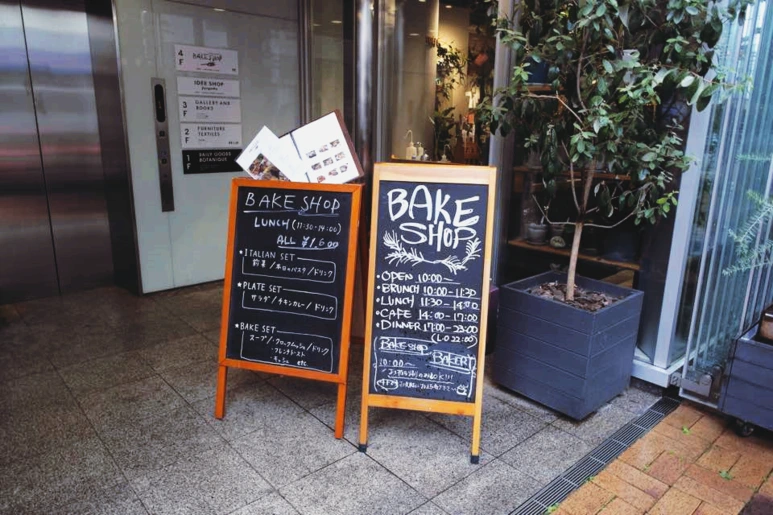 4F
BAKE SHOP
IDEE SHOP
3F
GALLERY AND
BOOKS
2F
FURNITURE
TEXTILES
1F
DAILY GOODS
BOTANIQUE
BAKE SHOP
LUNCH (11:30-14:00)
ALL ¥1,600
• ITALIAN SET
前菜/本日のパスタ/ドリンク
• PLATE SET
サラダ/チキンカレー/ドリンク
• BAKE SET
スープ/クロックムッシュ/ドリンク
・フレンチトースト
・キッシュ etc
BAKE
SHOP
• OPEN 10:00~
• BRUNCH 10:00-11:30
• LUNCH 11:30-14:00
• CAFE 14:00-17:00
• DINNER 17:00-23:00
(L.O 22:00)
BAKE SHOP BAKERY
10:00~